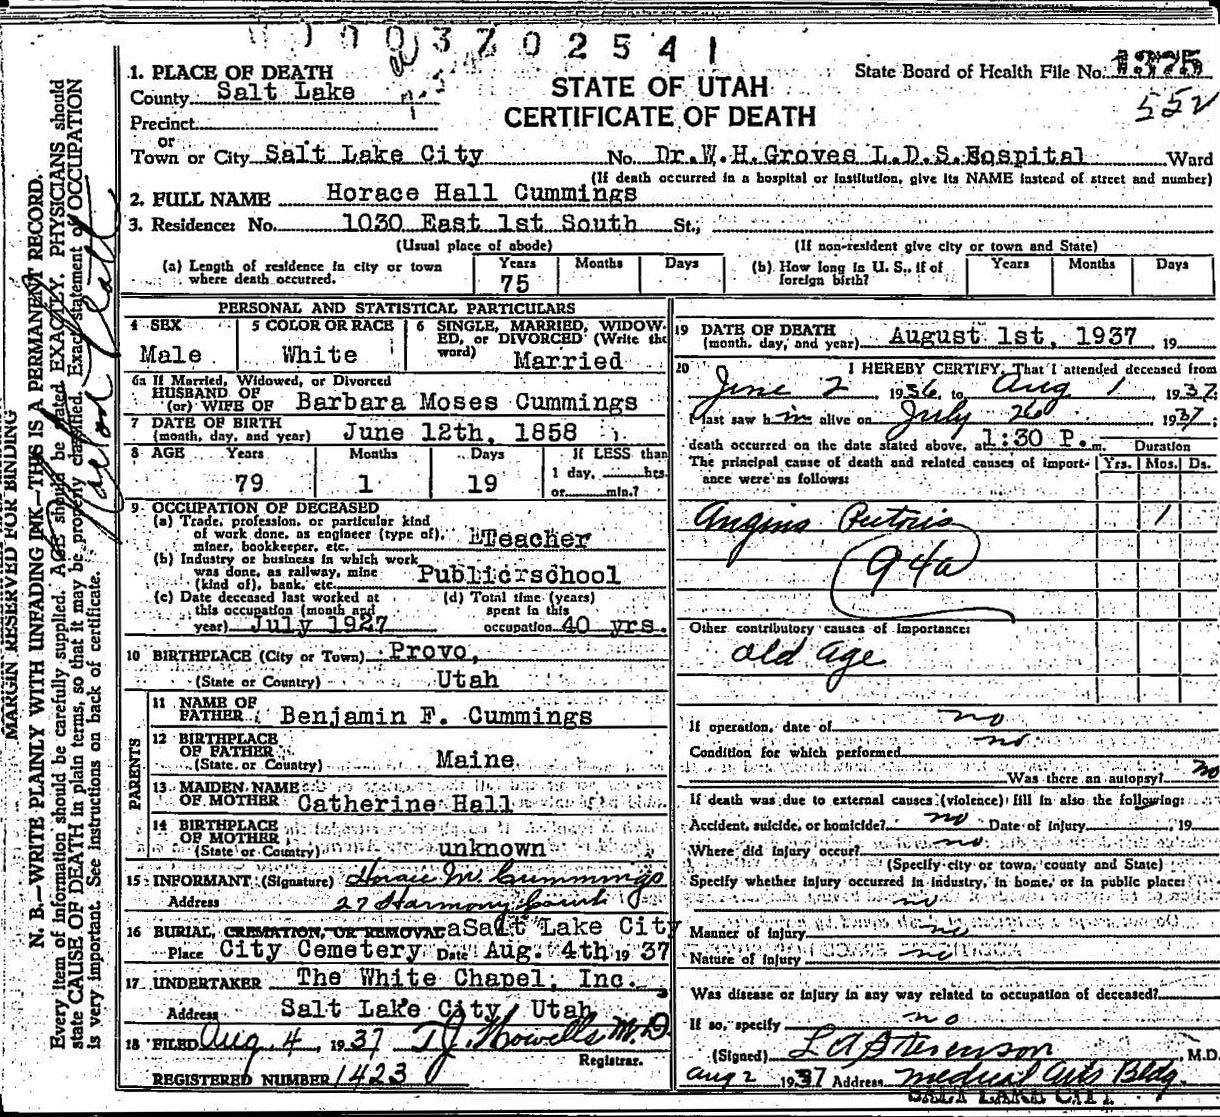 0003702541
1. PLACE OF DEATH
County Salt Lake
Precinct
or
Town or City Salt Lake City No. Dr.W.H.Groves L.D.S.Hospital Ward
STATE OF UTAH
CERTIFICATE OF DEATH
State Board of Health File No. 1375
552
(If death occurred in a hospital or institution, give its NAME instead of street and number)
2. FULL NAME Horace Hall Cummings
3. Residence: No. 1030 East 1st South St.,
(Usual place of abode) (If non-resident give city or town and State)
(a) Length of residence in city or town where death occurred. Years 75 Months Days
(b) How long in U. S., if of foreign birth? Years Months Days
PERSONAL AND STATISTICAL PARTICULARS
4 SEX Male
5 COLOR OR RACE White
6 SINGLE, MARRIED, WIDOWED, or DIVORCED (Write the word) Married
6a If Married, Widowed, or Divorced
HUSBAND OF
(or) WIFE OF Barbara Moses Cummings
7 DATE OF BIRTH
(month, day, and year) June 12th, 1858
8 AGE Years 79 Months 1 Days 19
If LESS than
1 day, hrs.
or min.?
9 OCCUPATION OF DECEASED
(a) Trade, profession, or particular kind
of work done, as engineer (type of),
miner, bookkeeper, etc. Teacher
(b) Industry or business in which work
was done, as railway, mine
(kind of), bank, etc. Public school
(c) Date deceased last worked at
this occupation (month and
year) July 1927
(d) Total time (years)
spent in this
occupation 40 yrs.
10 BIRTHPLACE (City or Town) Provo,
(State or Country) Utah
PARENTS
11 NAME OF
FATHER Benjamin F. Cummings
12 BIRTHPLACE
OF FATHER
(State or Country) Maine
13 MAIDEN NAME
OF MOTHER Catherine Hall
14 BIRTHPLACE
OF MOTHER
(State or Country) unknown
15 INFORMANT (Signature) Horace M. Cummings
Address 27 Harmony Court
16 BURIAL, CREMATION, OR REMOVAL Salt Lake City
Place City Cemetery Date Aug. 4th 19 37
17 UNDERTAKER The White Chapel, Inc.
Address Salt Lake City, Utah
18 FILED Aug. 4, 1937 T.J. Howells M.D.
Registrar.
REGISTERED NUMBER 1423
19 DATE OF DEATH
(month, day, and year) August 1st, 1937, 19
20 I HEREBY CERTIFY, That I attended deceased from
June 2 1936, to Aug 1, 1937
I last saw him alive on July 26, 1937;
death occurred on the date stated above, at 1:30 P. m.
Duration
The principal cause of death and related causes of importance were as follows: Yrs. Mos. Ds.
Angina Pectoris 1
94a
Other contributory causes of importance:
old age
If operation, date of no
Condition for which performed no
Was there an autopsy? no
If death was due to external causes (violence) fill in also the following:
Accident, suicide, or homicide? no Date of injury , 19
Where did injury occur? no
(Specify city or town, county and State)
Specify whether injury occurred in industry, in home, or in public place:
no
Manner of injury no
Nature of injury no
Was disease or injury in any way related to occupation of deceased?
If so, specify no
(Signed) L A Stevenson, M.D.
Aug 2 1937 Address Medical Arts Bldg.
SALT LAKE CITY
MARGIN RESERVED FOR BINDING
N. B.—WRITE PLAINLY WITH UNFADING INK—THIS IS A PERMANENT RECORD.
Every item of information should be carefully supplied. AGE should be stated EXACTLY. PHYSICIANS should
state CAUSE OF DEATH in plain terms, so that it may be properly classified. Exact statement of OCCUPATION
is very important. See instructions on back of certificate.